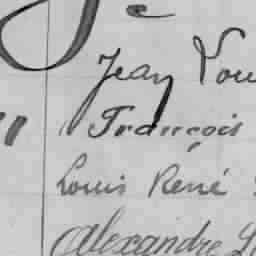 Jean
François
Louis René
Alexandre